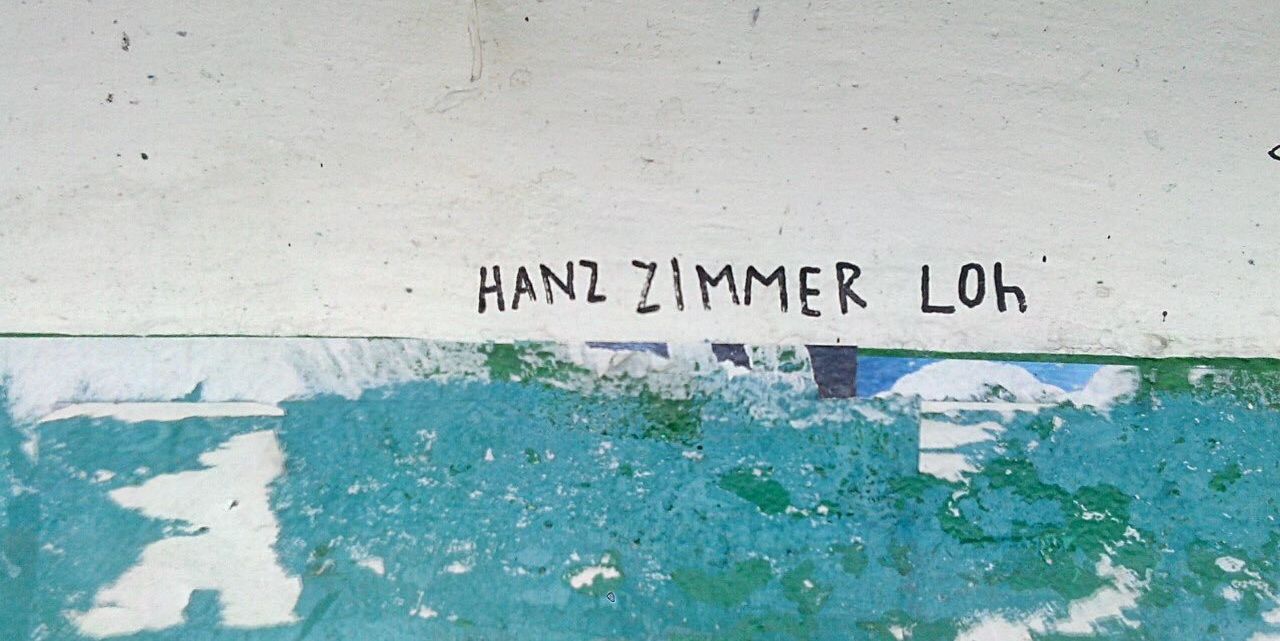 HANZ ZIMMER LOh